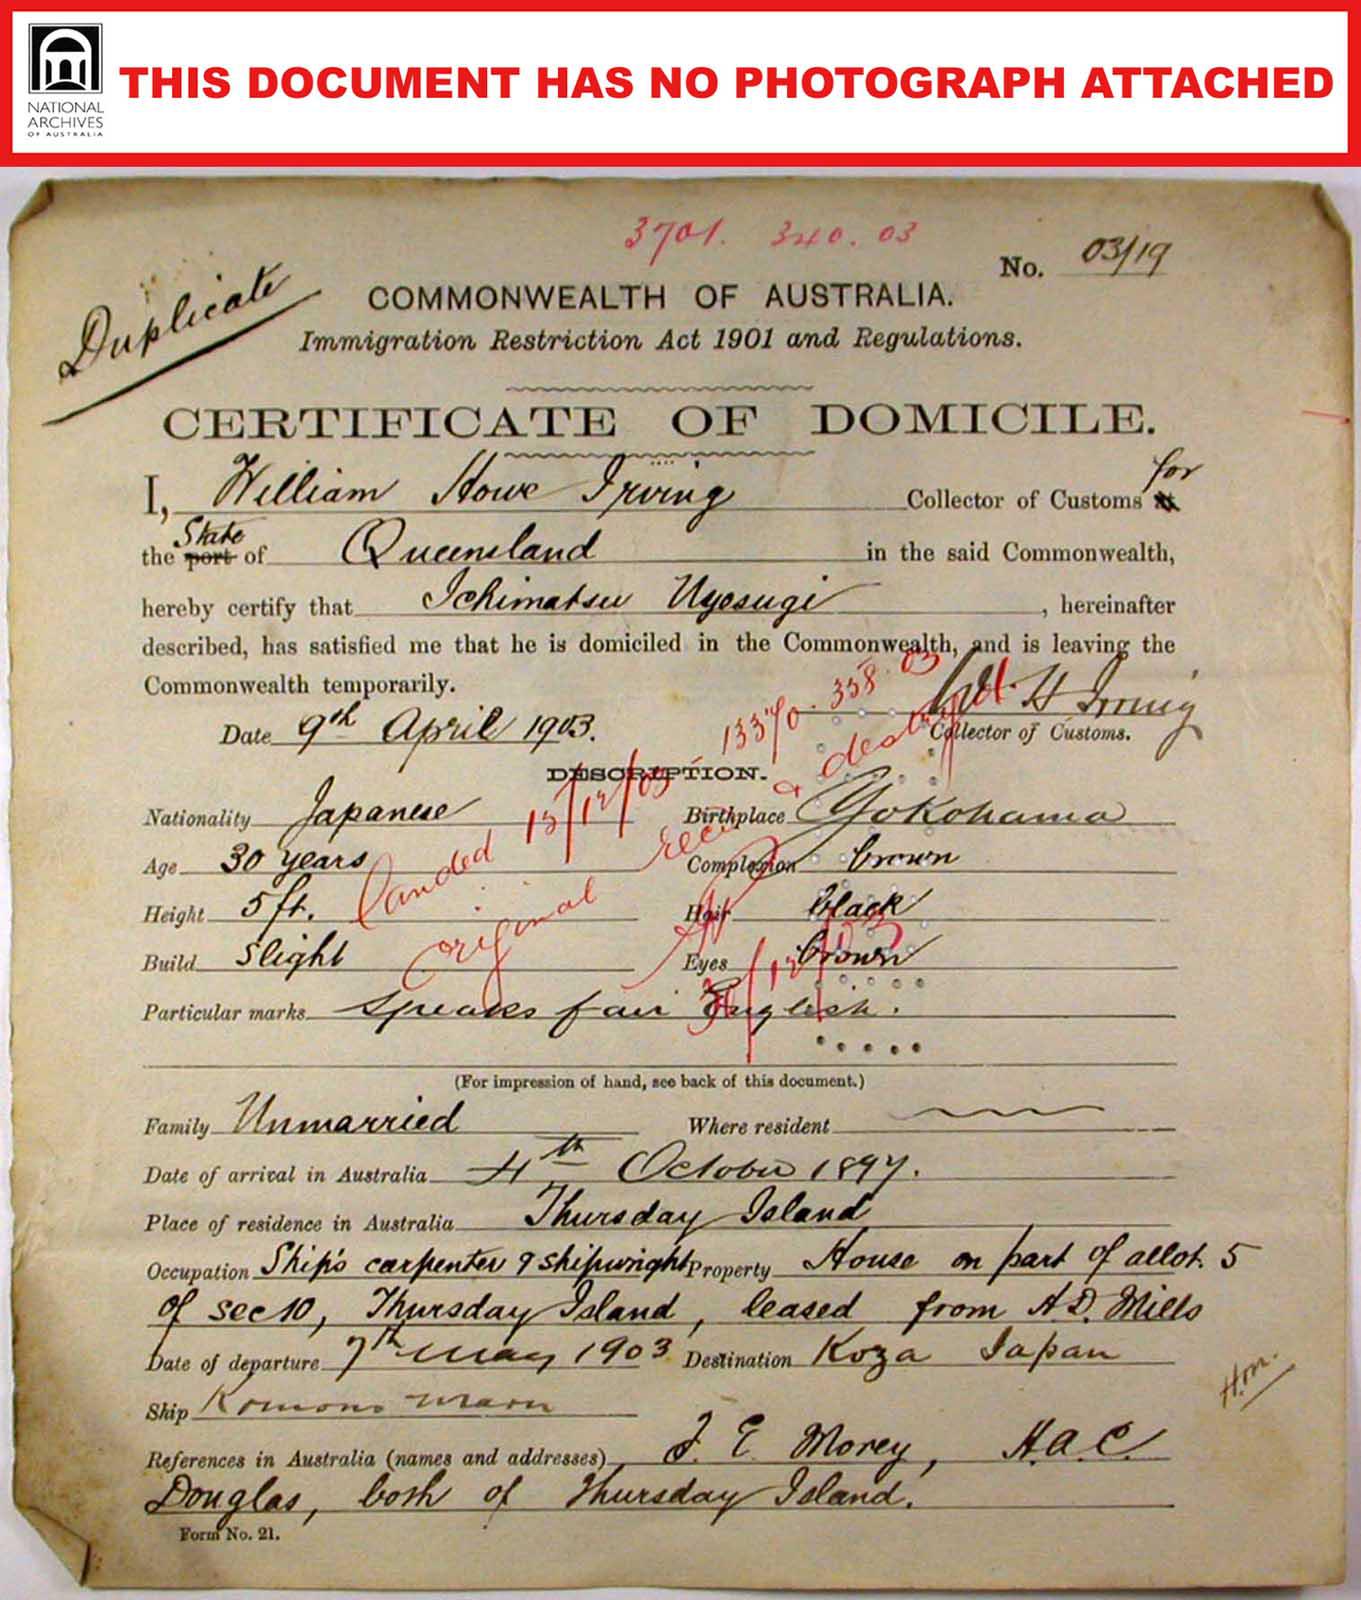 NATIONAL
ARCHIVES
OF AUSTRALIA
THIS DOCUMENT HAS NO PHOTOGRAPH ATTACHED
3701. 340. 03
No. 03/19
Duplicate
COMMONWEALTH OF AUSTRALIA.
Immigration Restriction Act 1901 and Regulations.
CERTIFICATE OF DOMICILE.
I, William Howe Irving Collector of Customs at for
the port State of Queensland in the said Commonwealth,
hereby certify that Ichimatsu Uyesugi, hereinafter
described, has satisfied me that he is domiciled in the Commonwealth, and is leaving the
Commonwealth temporarily.
W H Irving
Date 9th April 1903.
Collector of Customs.
13370. 358. 03
DESCRIPTION.
Nationality Japanese Birthplace Yokohama
Age 30 years Complexion brown
Height 5 ft. Hair black
Build Slight Eyes brown
Landed 15/12/03
original & destroyed.
31/12/03
Particular marks Speaks fair English.
(For impression of hand, see back of this document.)
Family Unmarried Where resident
Date of arrival in Australia 4th October 1897.
Place of residence in Australia Thursday Island
Occupation Ship's carpenter & shipwright Property House on part of allot. 5
of sec 10, Thursday Island, leased from A.D. Mills
Date of departure 7th May 1903 Destination Koza Japan
H.M.
Ship
References in Australia (names and addresses) J E Morey, H.A.C.
Douglas, both of Thursday Island.
Form No. 21.